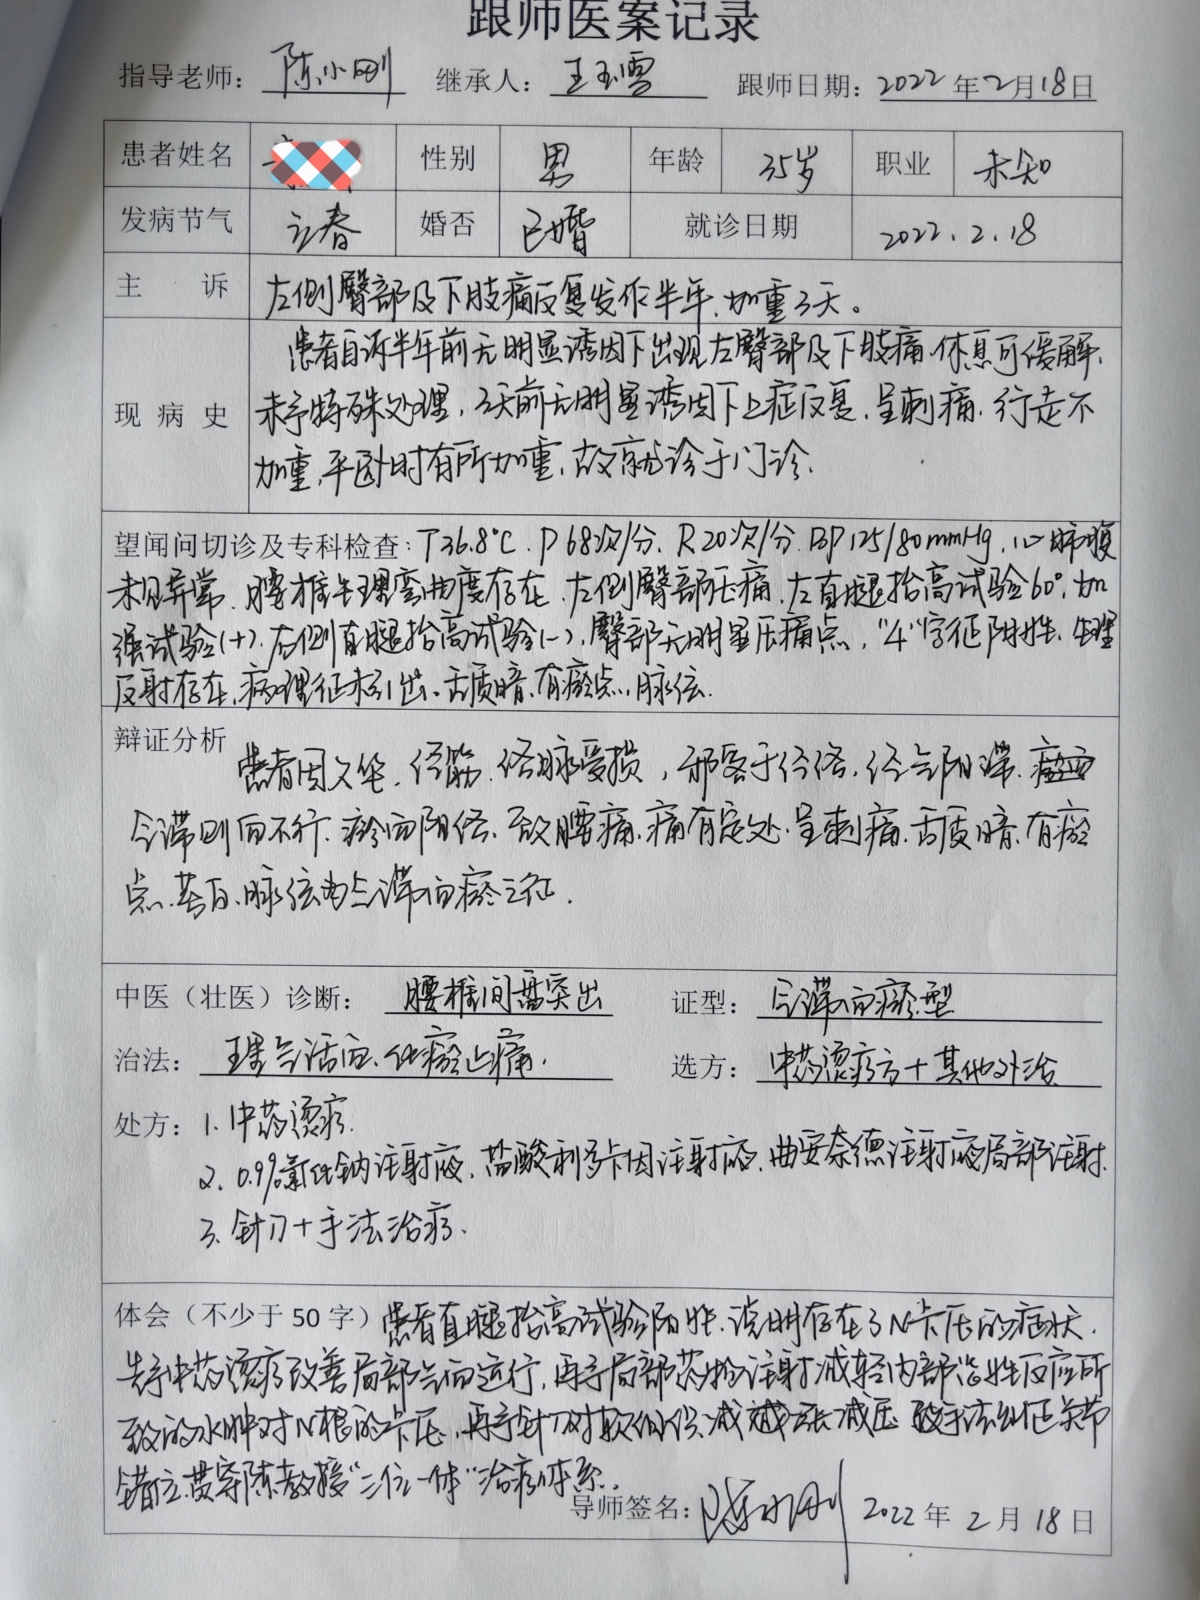 跟师医案记录
指导老师：陈小刚 继承人：王玉雪 跟师日期：2022年2月18日
患者姓名 性别 男 年龄 35岁 职业 未知
发病节气 立春 婚否 已婚 就诊日期 2022.2.18
主诉 左侧臀部及下肢痛反复发作半年，加重3天。
患者自诉半年前无明显诱因下出现左臀部及下肢痛，休息可缓解，
现病史 未予特殊处理，3天前无明显诱因下上症反复，呈刺痛，行走不
加重，平卧时有所加重，故就诊于门诊.
望闻问切诊及专科检查：T36.8℃，P 68次/分，R 20次/分，BP 125/80mmHg，心肺腹
未见异常，腰椎生理弯曲度存在，左侧臀部压痛，左直腿抬高试验60°，加
强试验(+)，右侧直腿抬高试验(-)，臀部无明显压痛点，"4"字征阴性，生理
反射存在，病理征未引出。舌质暗，有瘀点，脉弦.
辩证分析 患者因久坐，经筋、络脉受损，邪客于经络，经气阻滞，
气滞则血不行，瘀血阻络，致腰痛，痛有定处，呈刺痛，舌质暗，有瘀
点，苔白，脉弦为气滞血瘀之征.
中医（壮医）诊断：腰椎间盘突出 证型：气滞血瘀型
治法：理气活血、化瘀止痛. 选方：中药烫疗方+其他外治
处方：1. 中药烫疗.
2. 0.9%氯化钠注射液，盐酸利多卡因注射液，曲安奈德注射液局部注射.
3. 针刀+手法治疗.
体会（不少于50字）患者直腿抬高试验阳性，说明存在了N卡压的症状.
先予中药烫疗改善局部气血运行，再予局部药物注射减轻内部炎性反应所
致的水肿对N根的卡压，再予针刀对软组织减减张减压，手法纠正关节
错位，贯穿陈教授"三位一体"治疗体系.
导师签名：陈小刚 2022年2月18日